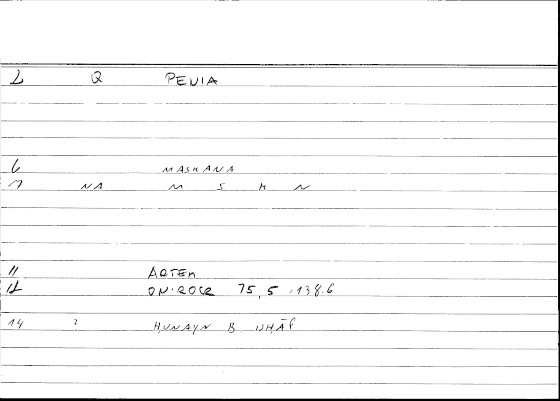 2 Q PENIA
6 MASKANA
7 NA M S K N
11 ARTEM
12 ONIROCR 75,5 138.6
14 ? HUNAYN B ISHĀQ